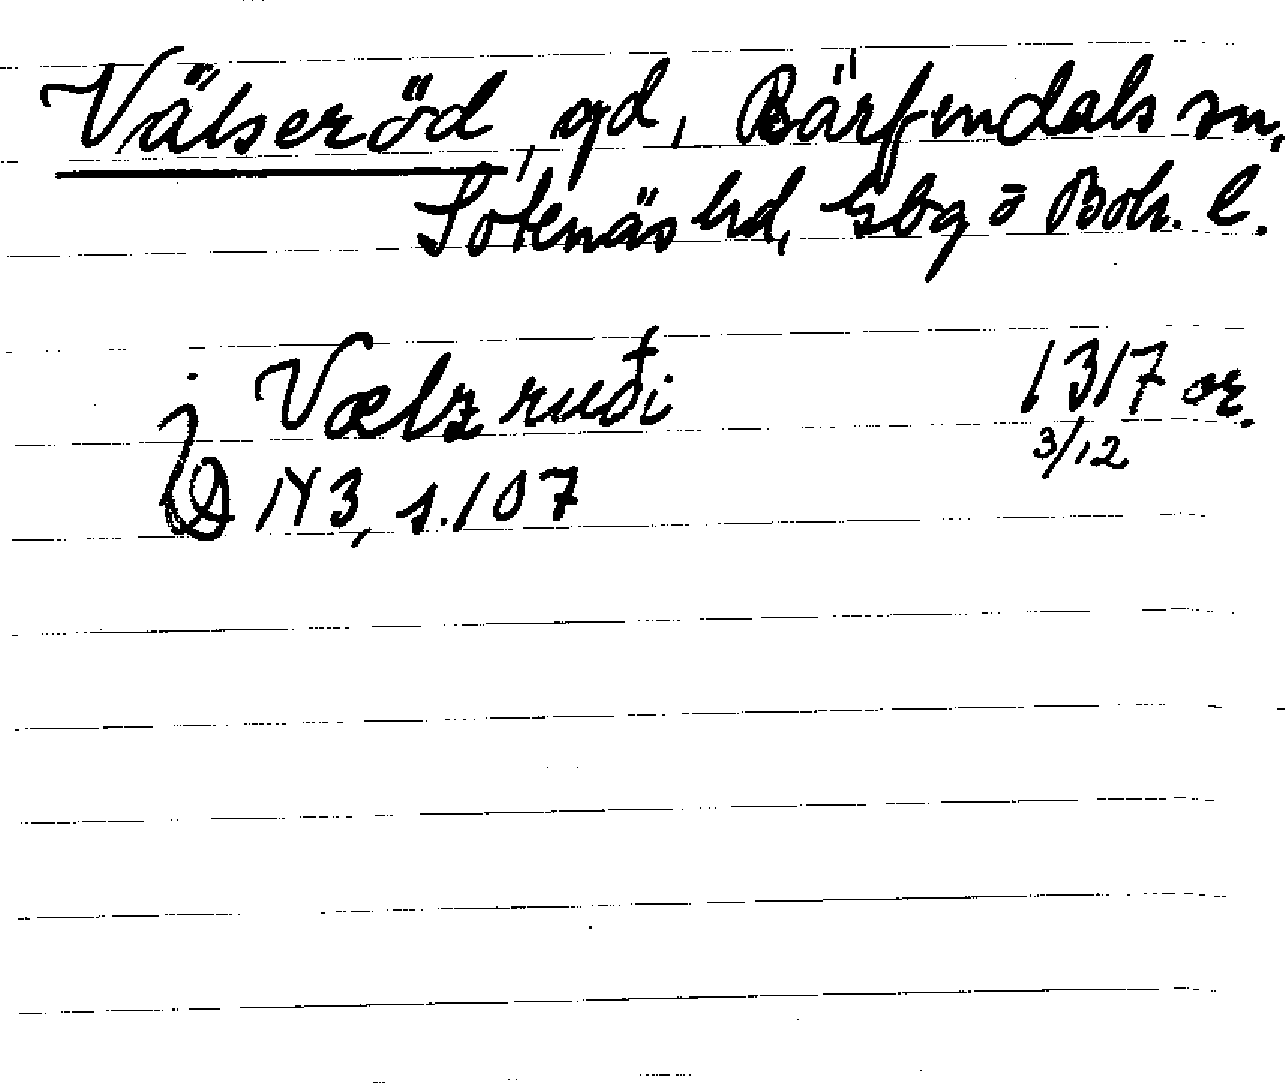 Välseröd, gd, Bärfendals sn,
Sotenäs hd, Gbg o Boh. l.
j Vælz ruđi 1317 or.
3/12
DN 3, s. 107